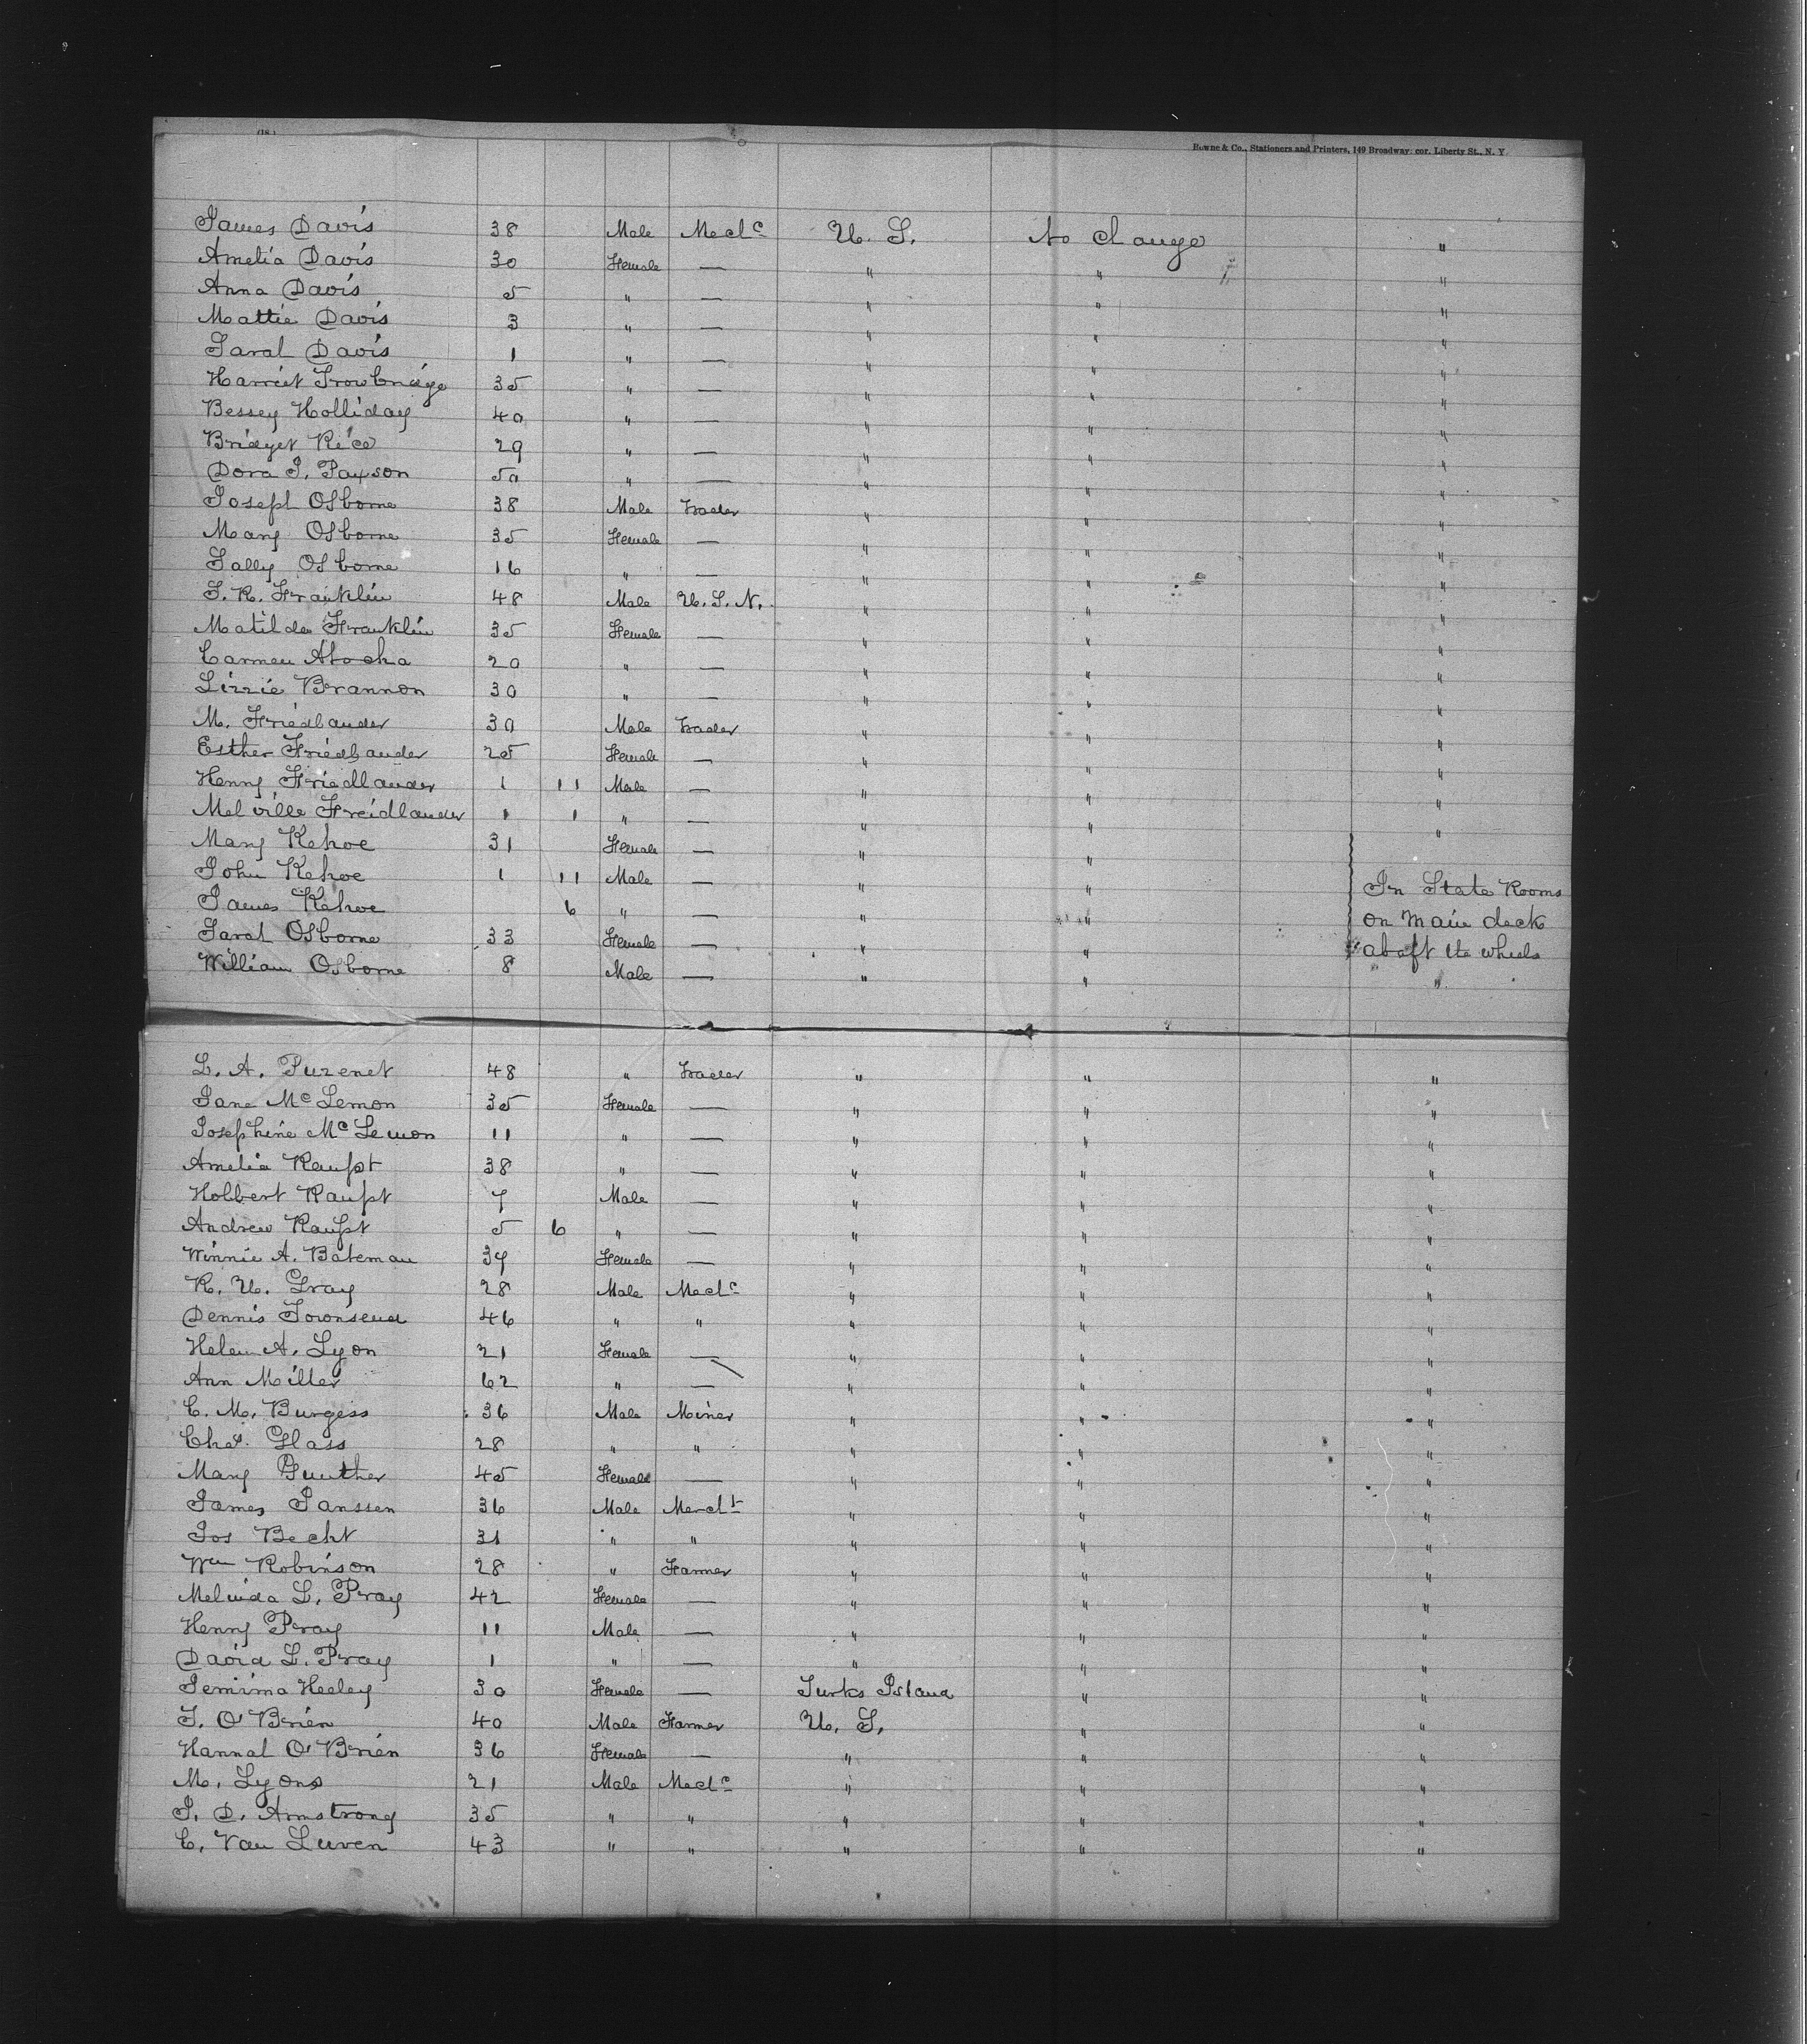 (18.)
Bowne & Co., Stationers and Printers, 149 Broadway, cor. Liberty St., N. Y.
James Davis 38 Male Mech<sup>c</sup> U. S. No change "
Amelia Davis 30 Female — " " "
Anna Davis 5 " — " " "
Mattie Davis 3 " — " " "
Sarah Davis 1 " — " " "
Harriet Trowbridge 35 " — " " "
Bessey Holliday 40 " — " " "
Bridget Rice 29 " — " " "
Dora J. Paxson 50 " — " " "
Joseph Osborne 38 Male Trader " " "
Mary Osborne 35 Female — " " "
Sally Osborne 16 " — " " "
S. R. Franklin 48 Male U. S. N. " " "
Matilda Franklin 35 Female — " " "
Carmen Atocha 20 " — " " "
Lizzie Brannon 30 " — " " "
M. Friedlander 30 Male Trader " " "
Esther Friedlander 25 Female — " " "
Henry Friedlander 1 11 Male — " " "
Melville Freidlander 1 1 " — " " "
Mary Kehoe 31 Female — " "
John Kehoe 1 11 Male — " " In State Rooms
James Kehoe 6 " — " " on main deck
Sarah Osborne 33 Female — " " abaft the wheels
William Osborne 8 Male — " " "
L. A. Puzenet 48 " Trader " " "
Jane Mc Lemon 35 Female — " " "
Josephine Mc Lemon 11 " — " " "
Amelia Raupt 38 " — " " "
Holbert Raupt 7 Male — " " "
Andrew Raupt 5 6 " — " " "
Winnie A. Bateman 37 Female — " " "
R. U. Gray 28 Male Mech<sup>c</sup> " " "
Dennis Townsend 46 " " " " "
Helen A. Lyon 21 Female — " " "
Ann Miller 62 " — " " "
C. M. Burgess 36 Male Miner " " "
Chas. Glass 28 " " " " "
Mary Gunther 45 Female — " " "
James Janssen 36 Male Merch<sup>t</sup> " " "
Jos Becht 31 " " " " "
Wm Robinson 28 " Farmer " " "
Melinda L. Pray 42 Female — " " "
Henry Pray 11 Male — " " "
David L. Pray 1 " — " " "
Jemima Heeley 30 Female — Turks Island " "
T. O'Brien 40 Male Farmer U. S. " "
Hannah O'Brien 36 Female — " " "
M. Lyons 21 Male Mech<sup>c</sup> " " "
J. D. Armstrong 35 " " " " "
C. Van Luven 43 " " " " "